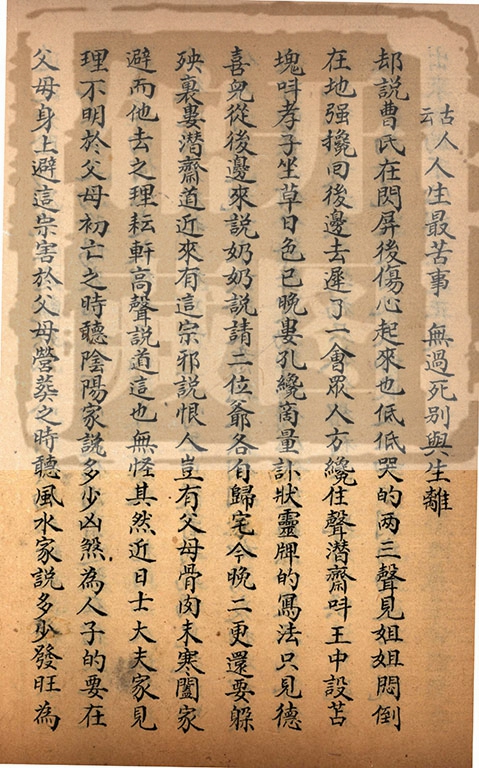 古人云人生最苦事 無過死別與生離
却說曹氏在閃屏後傷心起來也低低哭的两三聲見姐姐悶倒
在地强攙回後邊去遲了一會眾人方纔住聲潜齋呌王中設苫
塊呌孝子坐草日色已晚婁孔纔商量訃狀靈牌的寫法只見德
喜兒從後邊來說奶奶說請二位爺各自歸宅今晚二更還要躲
殃裏婁潜齋道近來有這宗邪說恨人豈有父母骨肉未寒闔家
避而他去之理耘軒高聲說道這也無怪其然近日士大夫家見
理不明於父母初亡之時聽陰陽家說多少凶煞為人子的要在
父母身上避這宗害於父母營葬之時聽風水家說多少發旺為